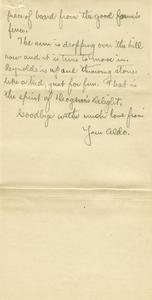 piece of board from the good farmer's
fence.
The sun is dropping over the hill
now and it is time to move on.
Reynolds is up and throwing stones
like a kid, just for fun. That is
the spirit of Diogenes' delight.
Goodbye with much love from
Your Aldo.